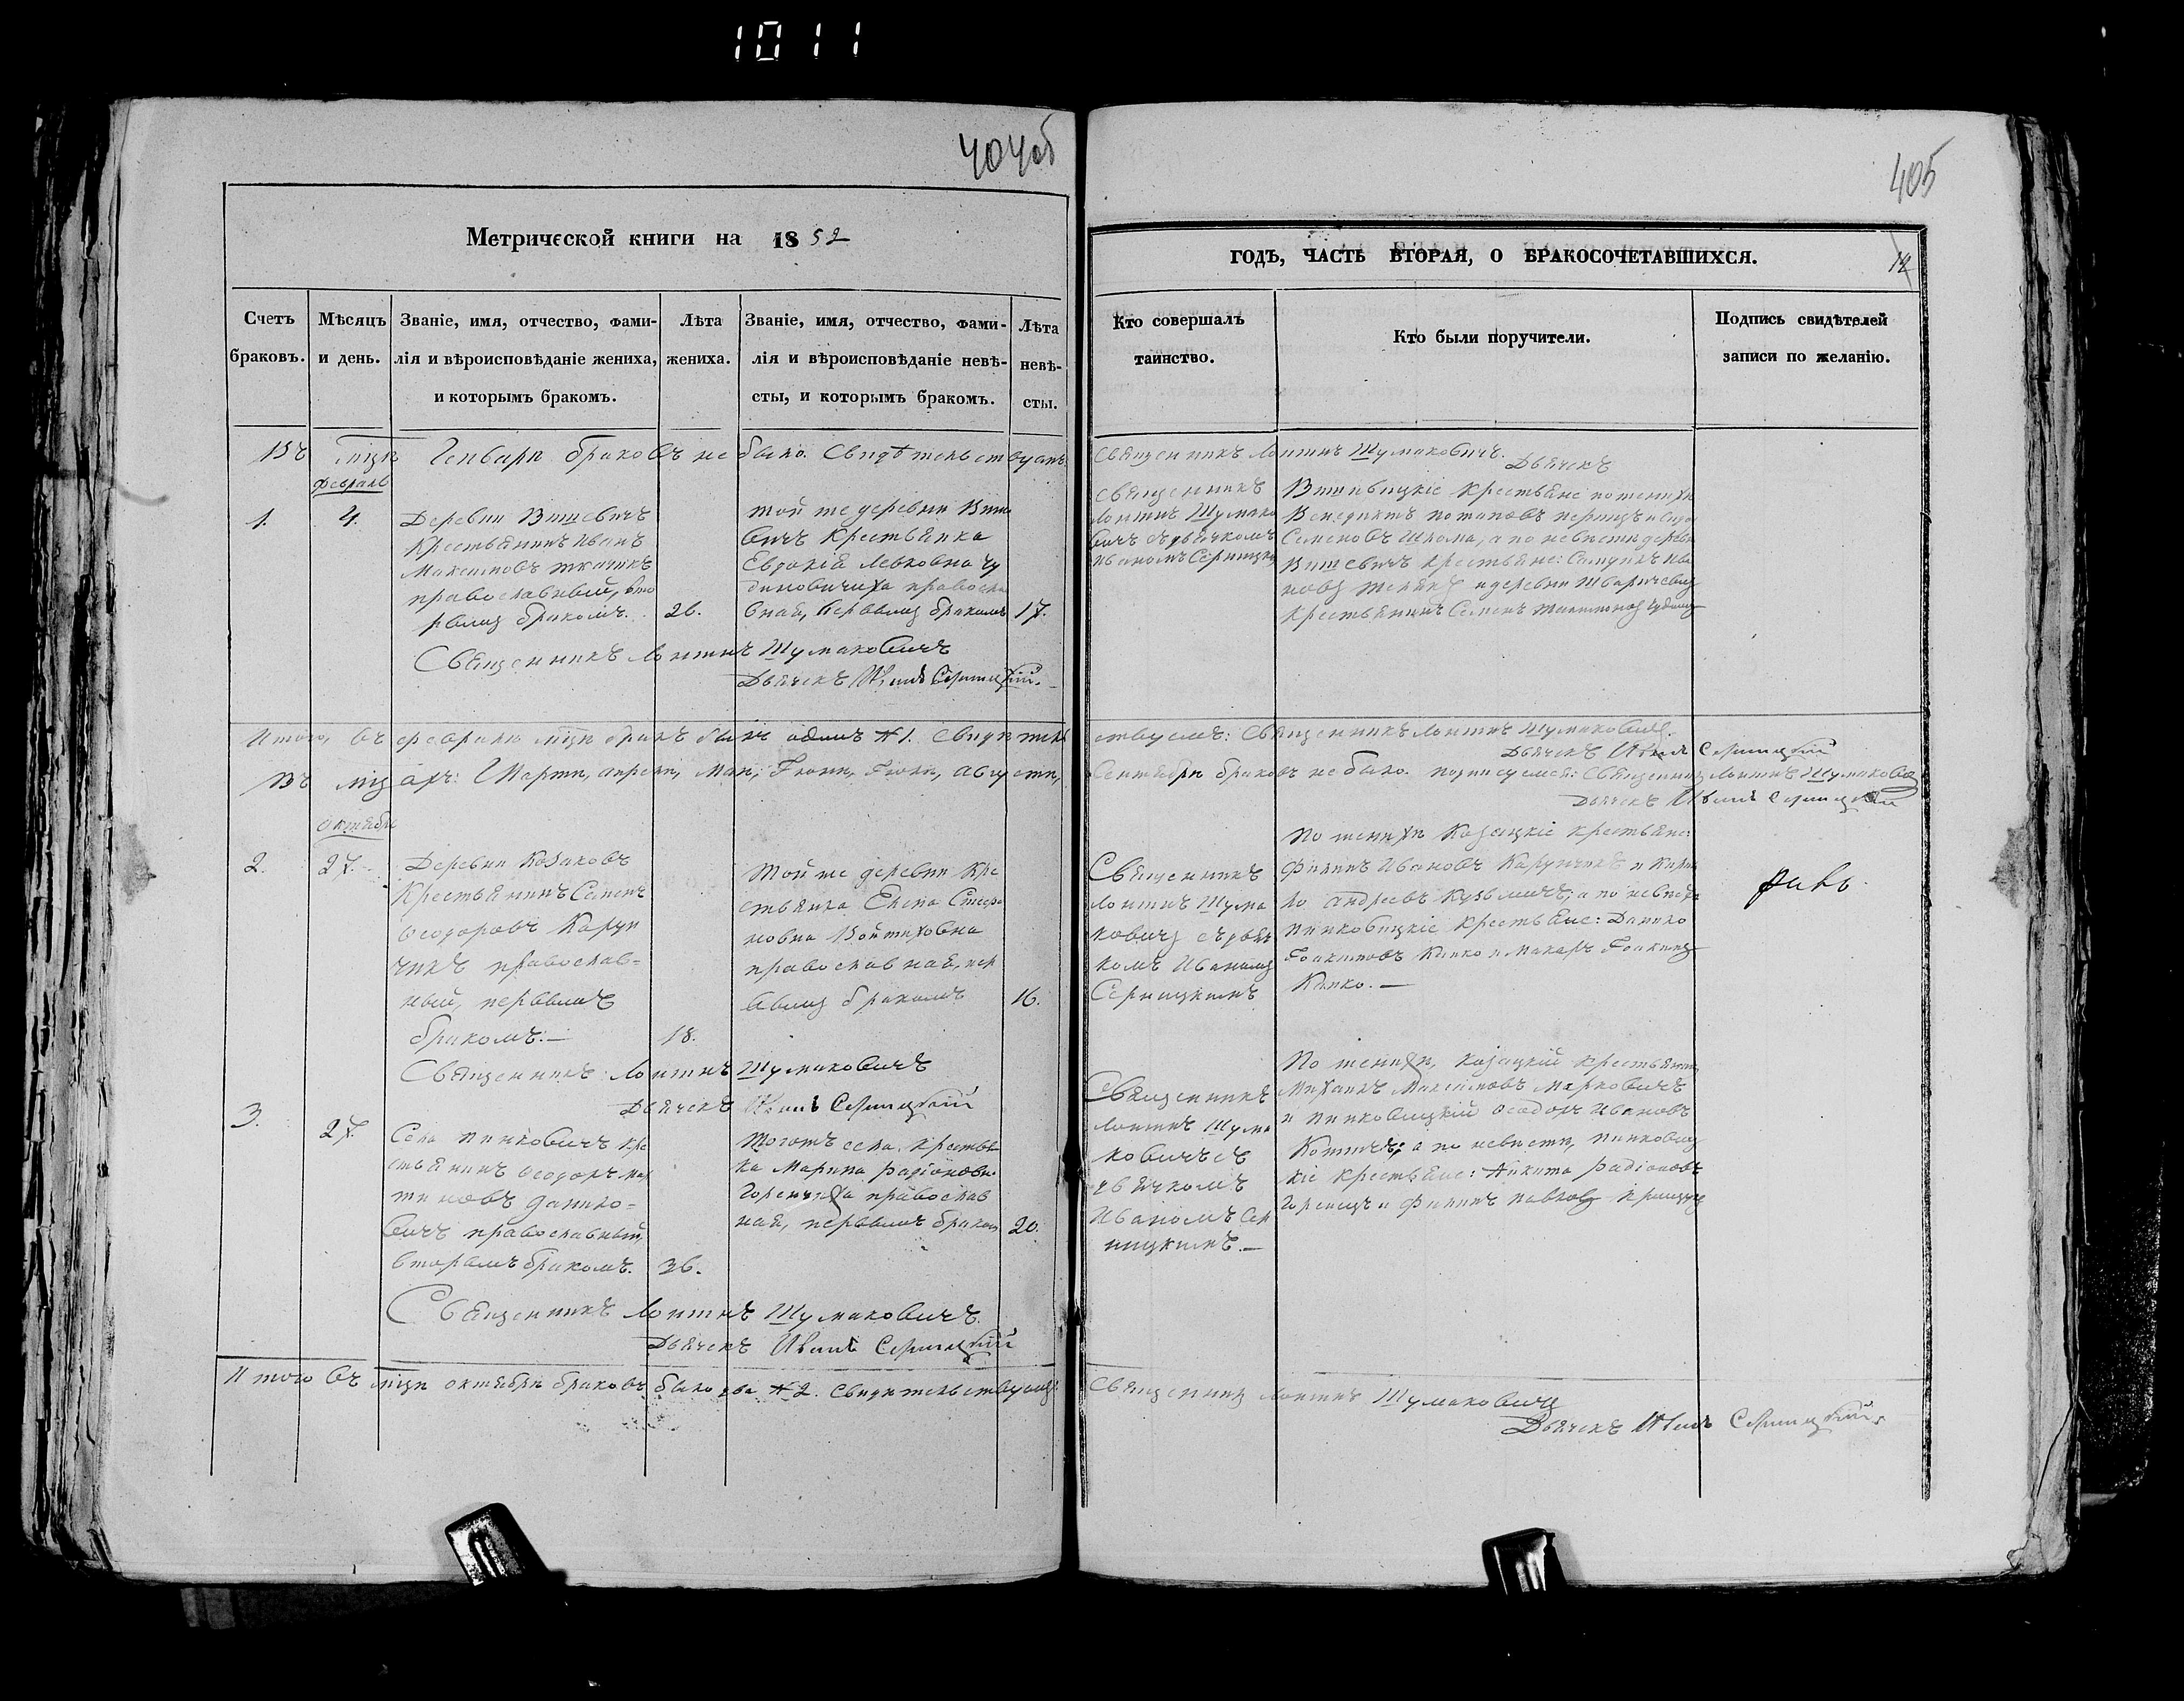 1011
404об
Метрической книги на 1852
Счетъ браковъ.
Мѣсяцъ и день.
Званіе, имя, отчество, фами-
лія и вѣроисповѣданіе жениха,
и которымъ бракомъ.
Лѣта
жениха.
Званіе, имя, отчество, фами-
лія и вѣроисповѣданіе невѣ-
сты, и которымъ бракомъ.
Лѣта
невѣ-
сты.
Въ мцѣ Генварѣ браковъ не было. Свидѣтельствуемъ:
Февраль
1.
4.
Деревни Вишевичъ
Крестьянинъ Иванъ
Максимовъ
православный, вто
рымъ бракомъ.
26.
той же деревни Више
вичъ Крестьянка
Евдокія Левковна
православ
ная, первымъ бракомъ
17.
Священникъ Логинъ Шумаковичъ
Дьячекъ Иванъ Серницкій.
Итого, въ февралѣ мцѣ бракъ былъ одинъ №1. Свидѣтель
Въ мцахъ: Мартѣ, апрелѣ, Маѣ, Іюнѣ, Іюлѣ, августѣ,
Октябрь
2.
27.
Деревни Козаковъ
Крестьянинъ Семенъ
Ѳеодоровъ Карун
чикъ православ=
ный, первымъ
бракомъ.—
18.
той же деревни Кре
стьянка Елена Стефа
новна Войтиховна
православная, пер
вымъ бракомъ
16.
Священникъ Логинъ Шумаковичъ
Дьячекъ Иванъ Серницкій
3.
27.
Села Пинковичъ кре
стьянинъ Ѳеодоръ Мар
тиновъ Данило=
вичъ православный,
вторымъ бракомъ.
36.
Тогожъ села, крестьян
ка Марина Радіоновна
Горенчиха православ
ная, первымъ бракомъ
20.
Священникъ Логинъ Шумаковичъ.
Дьячекъ Иванъ Серницкій
Итого въ мцѣ октябрѣ браковъ было два №2. Свидѣтельствуемъ:
405
годъ, часть вторая, о бракосочетавшихся.
12
Кто совершалъ
таинство.
Кто были поручители.
Подпись свидѣтелей
записи по желанію.
Священникъ Логинъ Шумаковичъ.
Дьячекъ
Священникъ
Логинъ Шумако
вичъ съ дьячкомъ
Иваномъ Серницкимъ
крестьяне по женихѣ
Венедиктъ Потаповъ
Семеновъ а по невѣстѣ деревни
Вишевичъ крестьяне:
и деревни
крестьянинъ Семенъ
ствуемъ: Священникъ Логинъ Шумаковичъ.
Дьячекъ Иванъ Серницкій
Сентябрѣ браковъ не было. подписуемся: Священникъ Логинъ Шумаковичъ
Дьячекъ Иванъ Серницкій
Священникъ
Логинъ Шума
ковичъ съ дьяч
комъ Иваномъ
Серницкимъ
По женихѣ Козацкіе крестьяне:
Филипъ Ивановъ Карунчикъ и Кири
ло Андреевъ Кузьмичъ; а по невѣстѣ
пинковицкіе крестьяне: Данило
Іоакимовъ Климко и Макаръ Іоакимовъ
Климко.—
Священникъ
Логинъ Шума
ковичъ съ
дьячкомъ
Иваномъ Сер
ницкимъ.—
По женихѣ, козацкій крестьянинъ
Михаилъ Максимовъ Марковичъ
и пинковицкій Ѳеодоръ Ивановъ
а по невѣстѣ, пинковиц
кіе крестьяне: Никита Радіоновъ
и Филипъ Павловъ
Священникъ Логинъ Шумаковичъ
Дьячекъ Иванъ Серницкій.